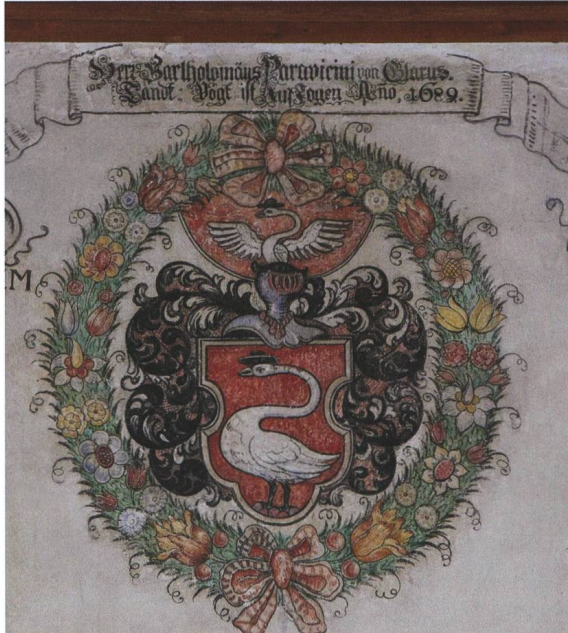 Herr Bartholomäus Paravicini von Glarus.
Landt. Vogt ist Auffzogen Año, 1689.
M